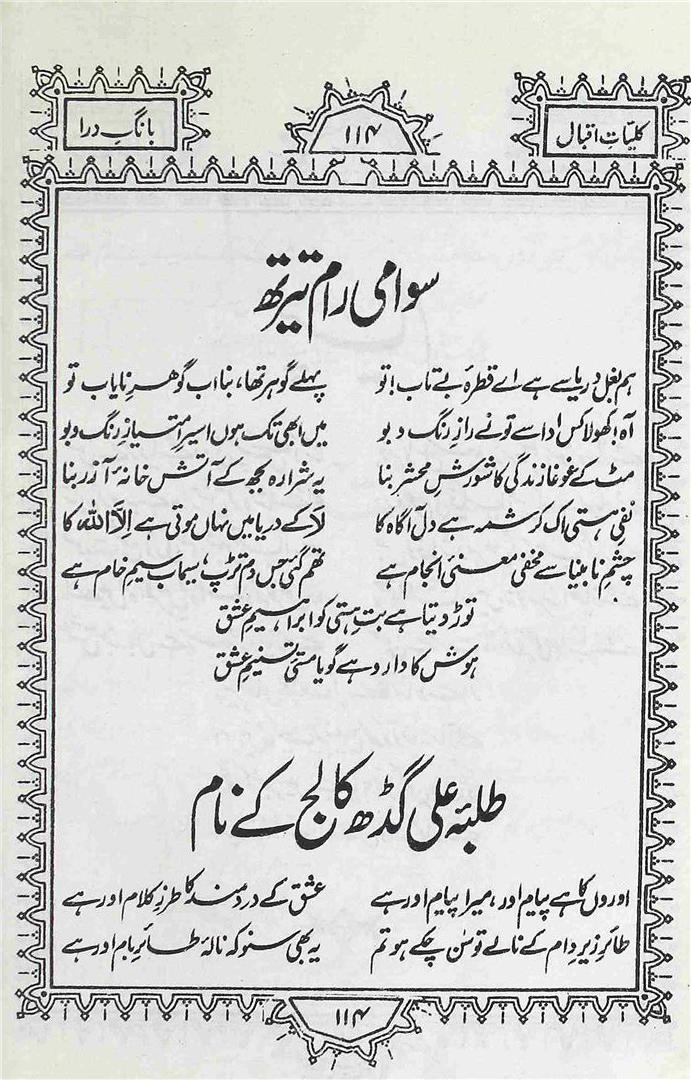 کلیاتِ اقبال
۱۱۴
بانگِ درا
سوامی رام تیرتھ
ہم بغل دریا سے ہے اے قطرۂ بے تاب! تو پہلے گوہر تھا، بنا اب گوہرِ نایاب تو
آہ! کھولا کس ادا سے تو نے رازِ رنگ و بو میں ابھی تک ہوں اسیرِ امتیازِ رنگ و بو
مٹ کے غوغا زندگی کا شورشِ محشر بنا یہ شرارہ بجھ کے آتش خانۂ آزر بنا
نفیِ ہستی اک کرشمہ ہے دلِ آگاہ کا لَا کے دریا میں نہاں موتی ہے اِلَّا اللہ کا
چشمِ نابینا سے مخفی معنئ انجام ہے تھم گئی جس دم تڑپ، سیماب سیمِ خام ہے
توڑ دیتا ہے بتِ ہستی کو ابراہیمِ عشق
ہوش کا دارو ہے گویا مستیِ تسنیمِ عشق
طلبۂ علی گڈھ کالج کے نام
اوروں کا ہے پیام اور، میرا پیام اور ہے عشق کے دردمند کا طرزِ کلام اور ہے
طائرِ زیرِ دام کے نالے تو سن چکے ہو تم یہ بھی سنو کہ نالۂ طائرِ بام اور ہے
۱۱۴